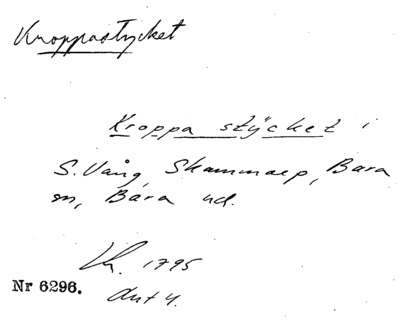 Kroppastycket
Kroppa stÿcket i
S. Vång, Skammarp, Bara
sn, Bara hd.
LM. 1795
Akt 4.
Nr 6296.